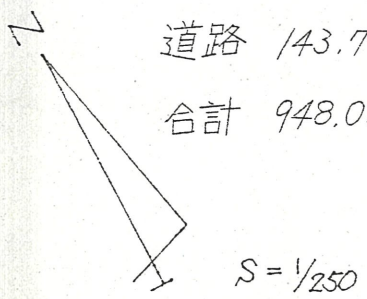 N
道路 143.7
合計 948.0
S = 1/250